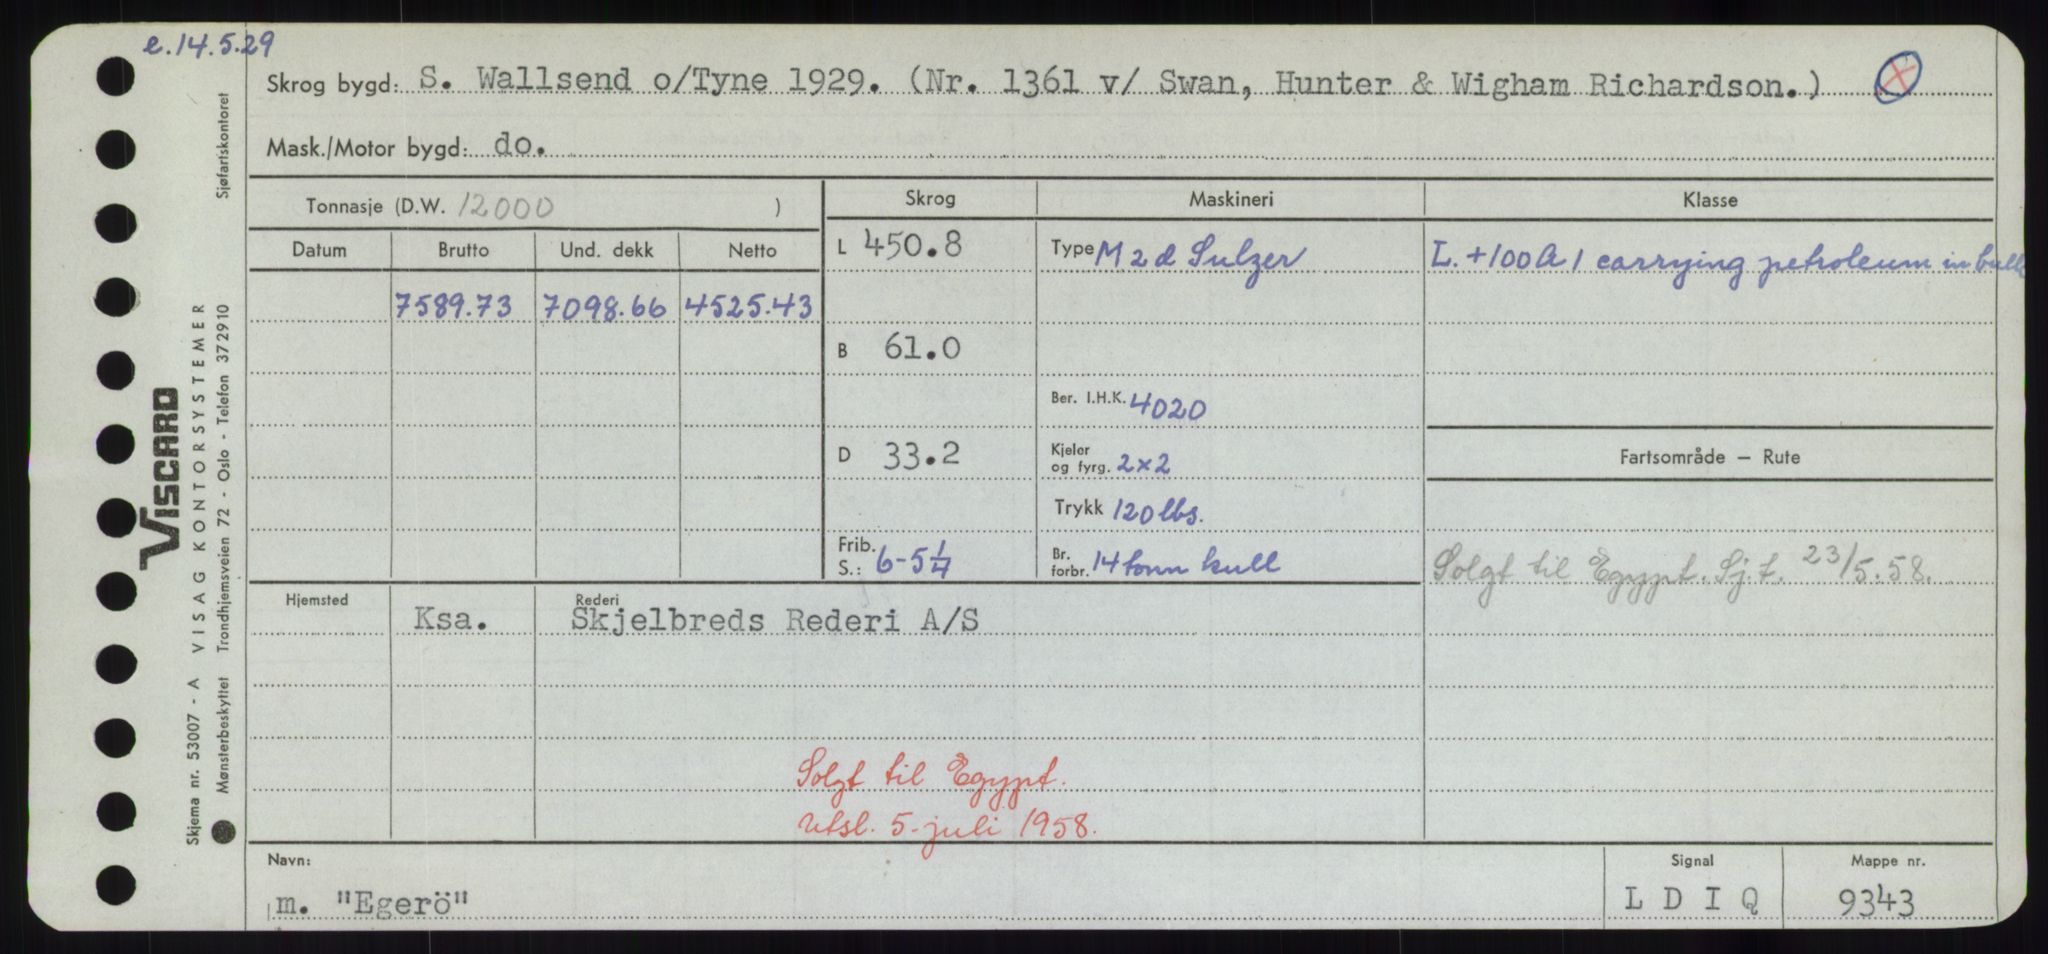 e.14.5.29
Skrog bygd: S. Wallsend o/Tyne 1929. (Nr. 1361 v/ Swan, Hunter & Wigham Richardson.)
Mask./Motor bygd: do.
Tonnasje (D.W. 12000 )
Skrog Maskineri Klasse
Datum Brutto Und. dekk Netto
L 450.8 Type M 2 d Sulzer L. +100 A 1 carrying petroleum in bulk
7589.73 7098.66 4525.43
B 61.0
Ber. I.H.K. 4020
D 33.2 Kjeler og fyrg. 2x2 Fartsområde — Rute
Trykk 120 lbs.
Frib. S.: 6-5 1/4 Br. forbr. 14 tonn kull Solgt til Egypt. Sj.t. 23/5.58.
Hjemsted Ksa. Rederi Skjelbreds Rederi A/S
Solgt til Egypt.
Utsl. 5. juli 1958.
Navn: Signal Mappe nr.
m. "Egerö" L D I Q 9343
VISCARD
Skjema nr. 53007 - A VISAG KONTORSYSTEMER Sjøfartskontoret
Mønsterbeskyttet Trondhjemsveien 72 - Oslo - Telefon 372910